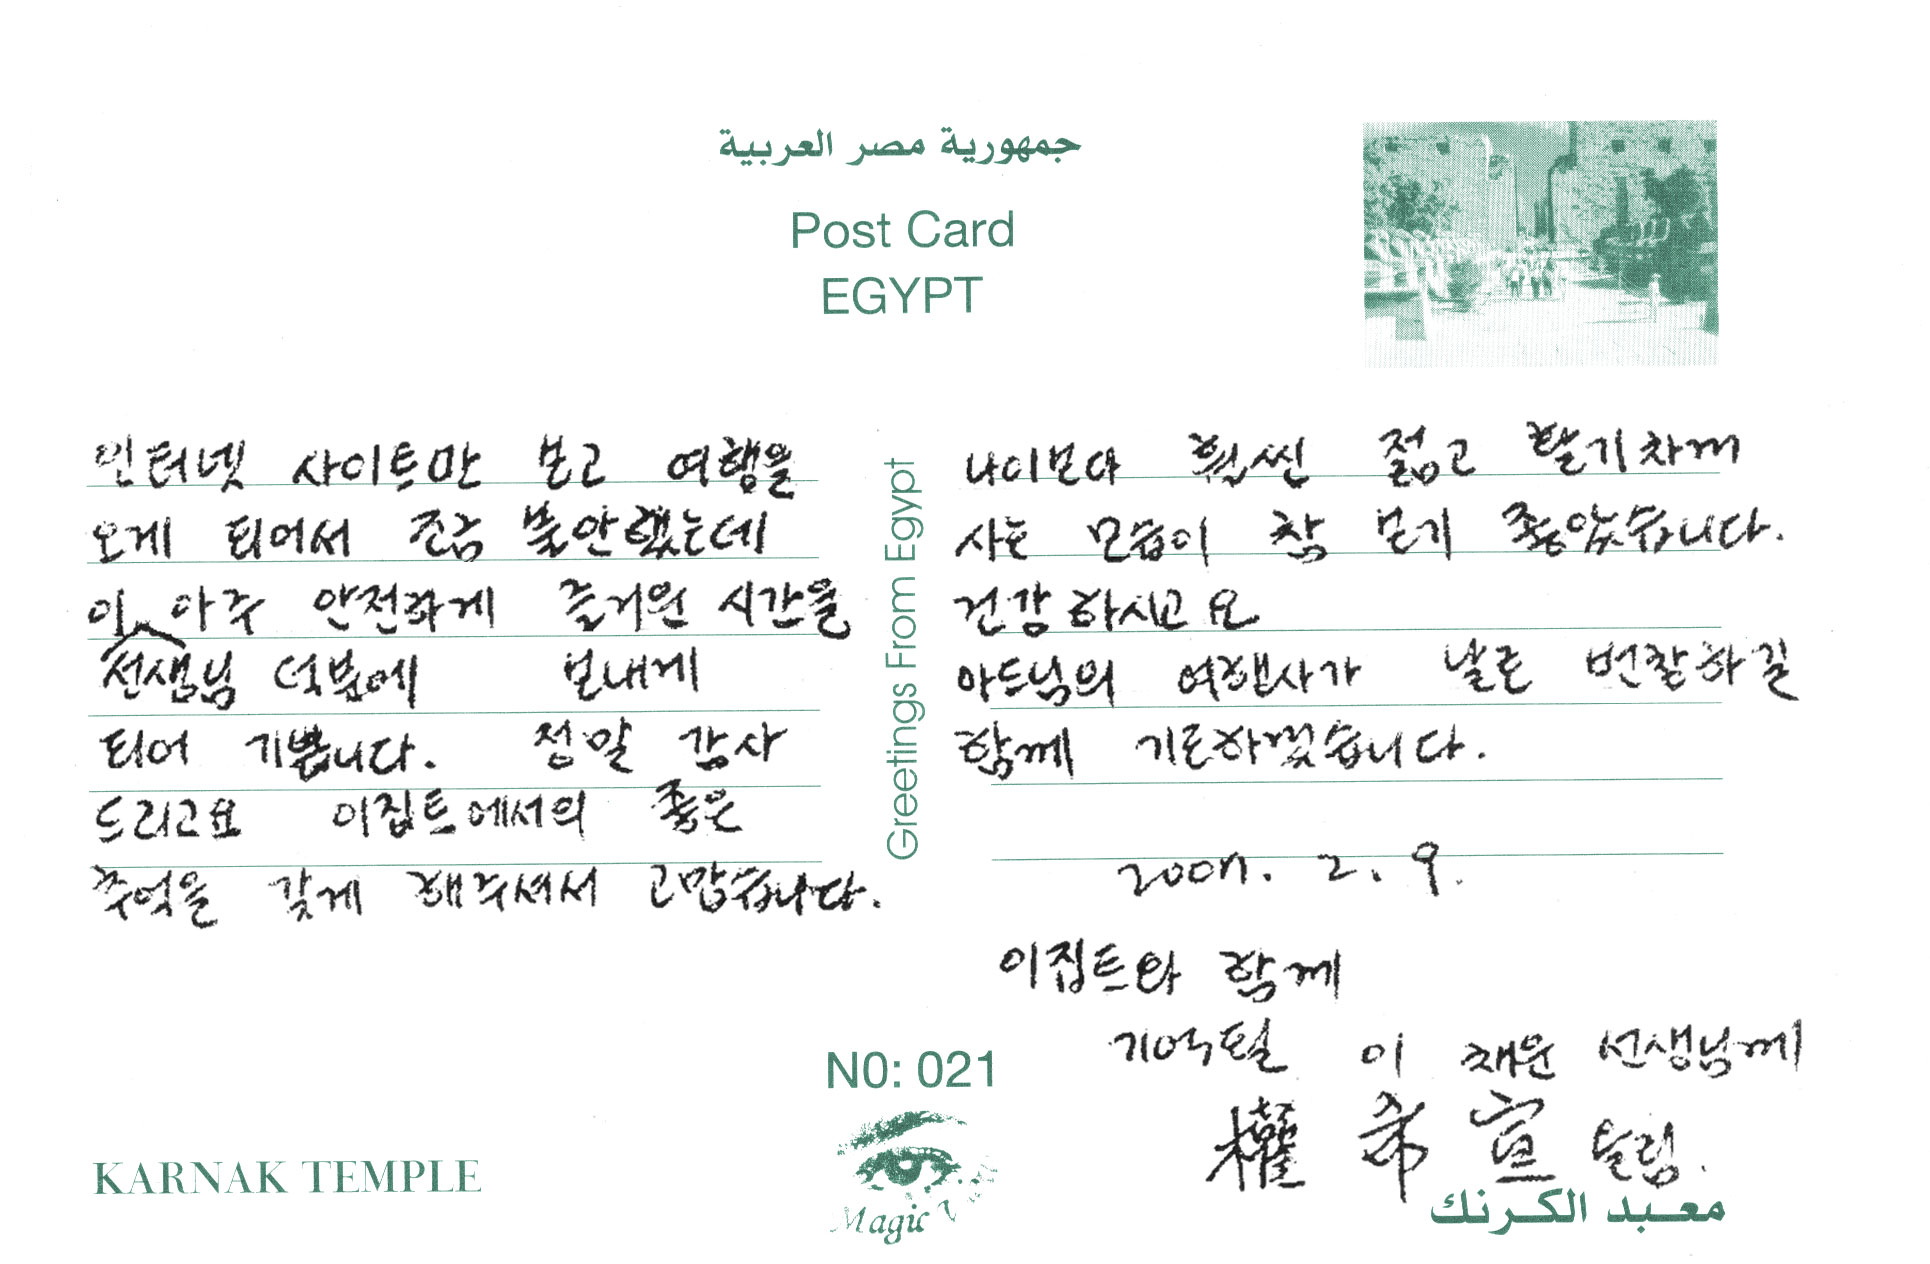 جمهورية مصر العربية
Post Card
EGYPT
인터넷 사이트만 보고 여행을
오게 되어서 조금 불안했는데
이 아주 안전하게 즐거운 시간을
선생님 덕분에 보내게
되어 기쁩니다. 정말 감사
드리고요 이집트에서의 좋은
추억을 갖게 해주셔서 고맙습니다.
Greetings From Egypt
나이보다 훨씬 젊고 활기차게
사는 모습이 참 보기 좋았습니다.
건강하시고요
아드님의 여행사가 날로 번창하길
함께 기도하겠습니다.
2007. 2. 9.
이집트와 함께
기억될 이 채운 선생님께
權 希 宣 드림.
N0: 021
Magic
KARNAK TEMPLE
معبد الكرنك